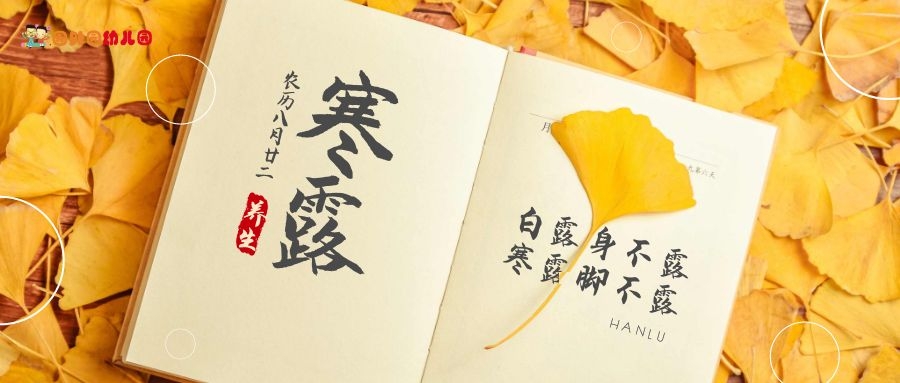 幼儿园
寒露
农历八月廿二
养生
月
九第六天
白露身不露
寒露脚不露
HANLU